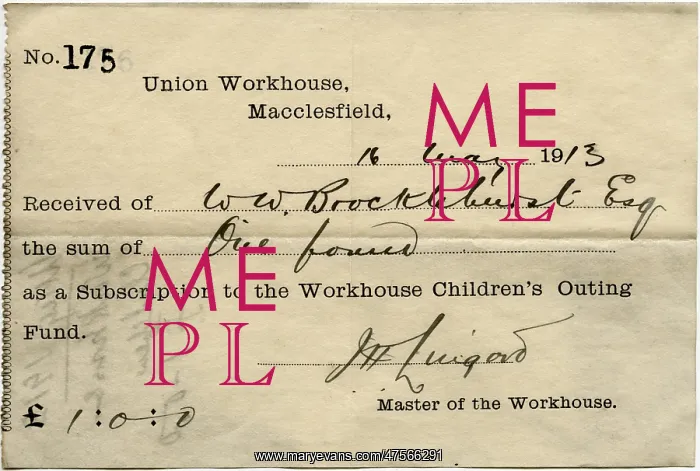 No. 175
Union Workhouse,
Macclesfield,
16 May 1913
Received of W. W. Brocklehurst Esq
the sum of One pound
as a Subscription to the Workhouse Children's Outing
Fund.
J H Lingard
Master of the Workhouse.
£ 1:0:0
ME
PL
ME
PL
www.maryevans.com/47566291